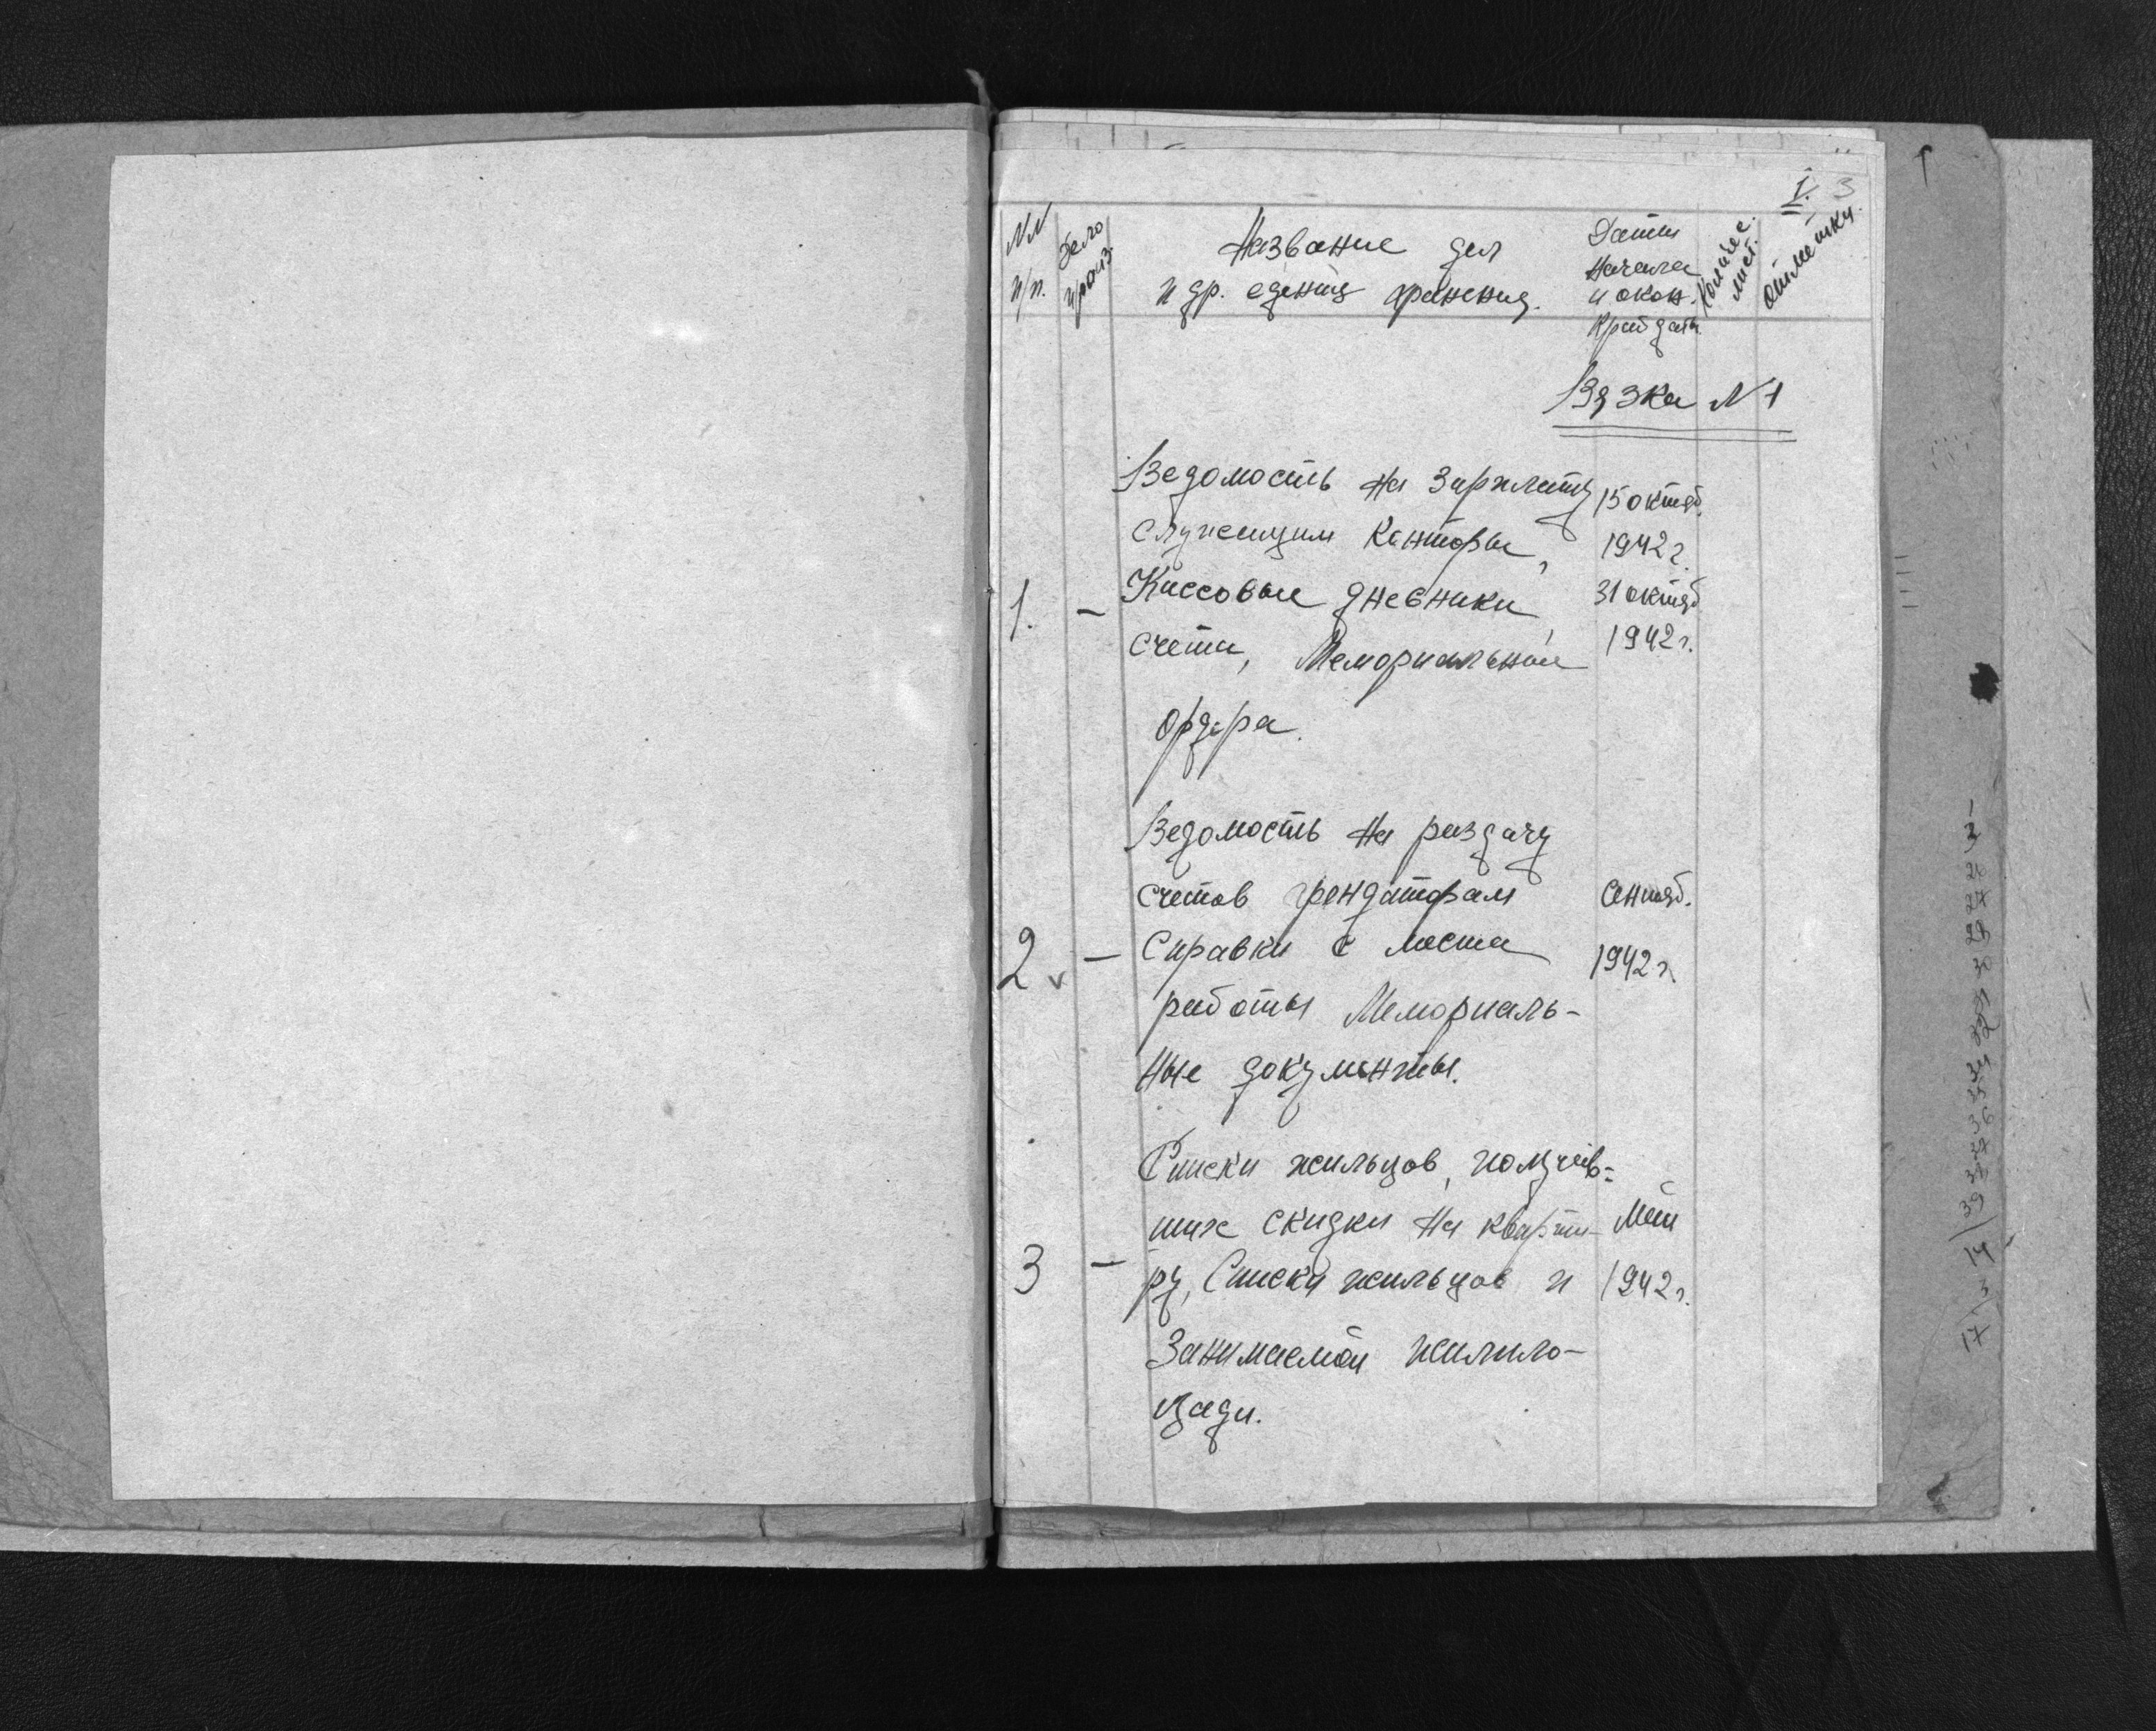 I. 3
NN п/п.
Дело произ.
Название дел
и др. единиц хранения.
Даты
начала
и окон.
Край даты.
Количес. лист.
Отметки.
Вязка N 1
Ведомость на зарплату
служащим Конторы,
Кассовые дневники,
счета, Мемориальные
ордера.
1. –
15 октяб.
1942 г.
31 октяб
1942 г.
Ведомость на раздачу
счетов арендаторам
Справки с места
работы Мемориаль-
ные документы.
2 v –
Сентяб.
1942 г.
Списки жильцов, получив-
ших скидки на кварти-
ру, Списки жильцов и
занимаемой жилпло-
щади.
3 –
Май
1942 г.